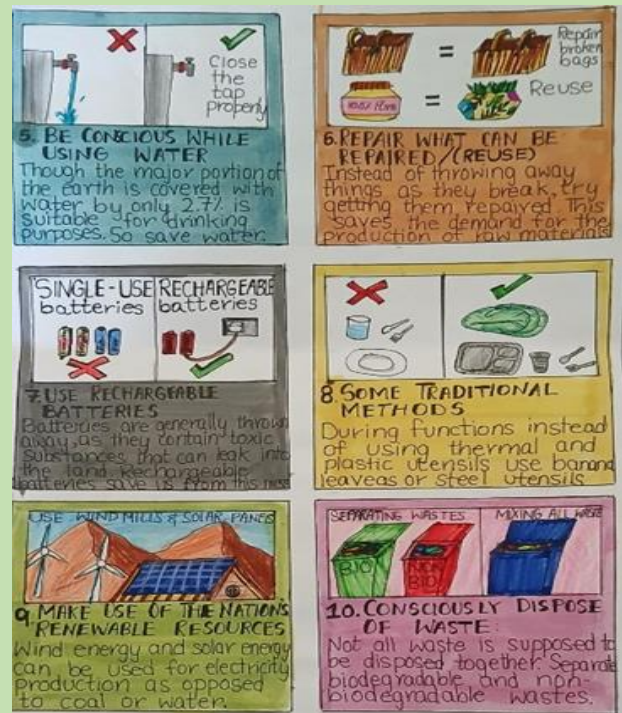 Close
the
tap
properly
5. BE CONSCIOUS WHILE
USING WATER
Though the major portion of
the earth is covered with
water by only 2.7% is
suitable for drinking
purposes. So save water.
=
Repair
broken
bags
=
Reuse
6. REPAIR WHAT CAN BE
REPAIRED/(REUSE)
Instead of throwing away
things as they break, try
getting them repaired. This
saves the demand for the
production of raw materials
SINGLE-USE
batteries
RECHARGEABLE
batteries
7. USE RECHARGEABLE
BATTERIES
Batteries are generally thrown
away, as they contain toxic
substances that can leak into
the land. Rechargeable
batteries save us from this mess
8. SOME TRADITIONAL
METHODS
During functions instead
of using thermal and
plastic utensils use banana
leaveas or steel utensils
USE WIND MILLS & SOLAR PANELS
9. MAKE USE OF THE NATION'S
RENEWABLE RESOURCES
Wind energy and solar energy
can be used for electricity
production as opposed
to coal or water.
SEPARATING WASTES
BIO
NON
BIO
MIXING ALL WASTE
10. CONSCIOUSLY DISPOSE
OF WASTE:
Not all waste is supposed to
be disposed together. Separate
biodegradable and non-
biodegradable wastes.